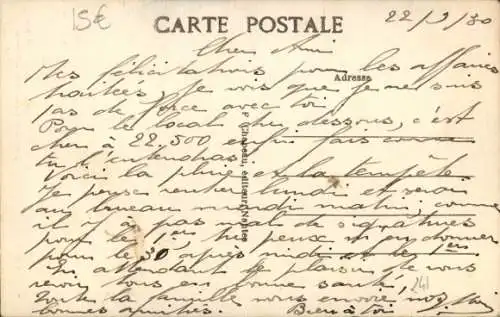 15€
CARTE POSTALE
22/9/30
Cher Ami
Mes félicitations pour les affaires
Adresse
traitées, je vois que je ne suis
pas de force avec toi
Pour le local du dessous, c'est
cher à 22.500 enfin fais comme
tu l'entendras.
Voici la pluie et la tempête
Je pense rentrer lundi et serai
au bureau mardi matin, comme
il y a pas mal de signatures
pour le 1er, tu peux m'en donner
pour le 30 après midi et le 1er.
En attendant le plaisir de vous
revoir tous en bonne santé,
toute la famille vous envoie nos
bonnes amitiés. Bien à toi
P. Chapeau, éditeur, Nantes
241